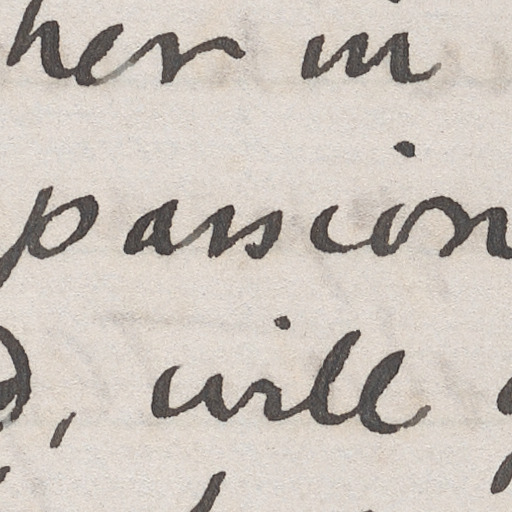 her in
passion
, will